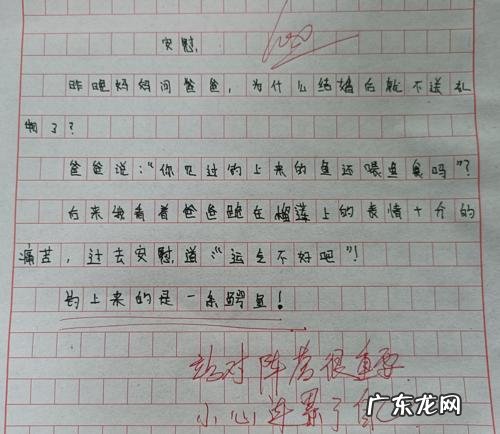 安慰
100
昨晚妈妈问爸爸，为什么结婚后就不送礼
物了？
爸爸说："你见过钓上来的鱼还喂鱼食吗"？
后来我看着爸爸跪在榴莲上的表情十分的
痛苦，过去安慰道："运气不好吧"！
钓上来的是一条鳄鱼！
站对阵营很重要
小心连累了你
广东龙网